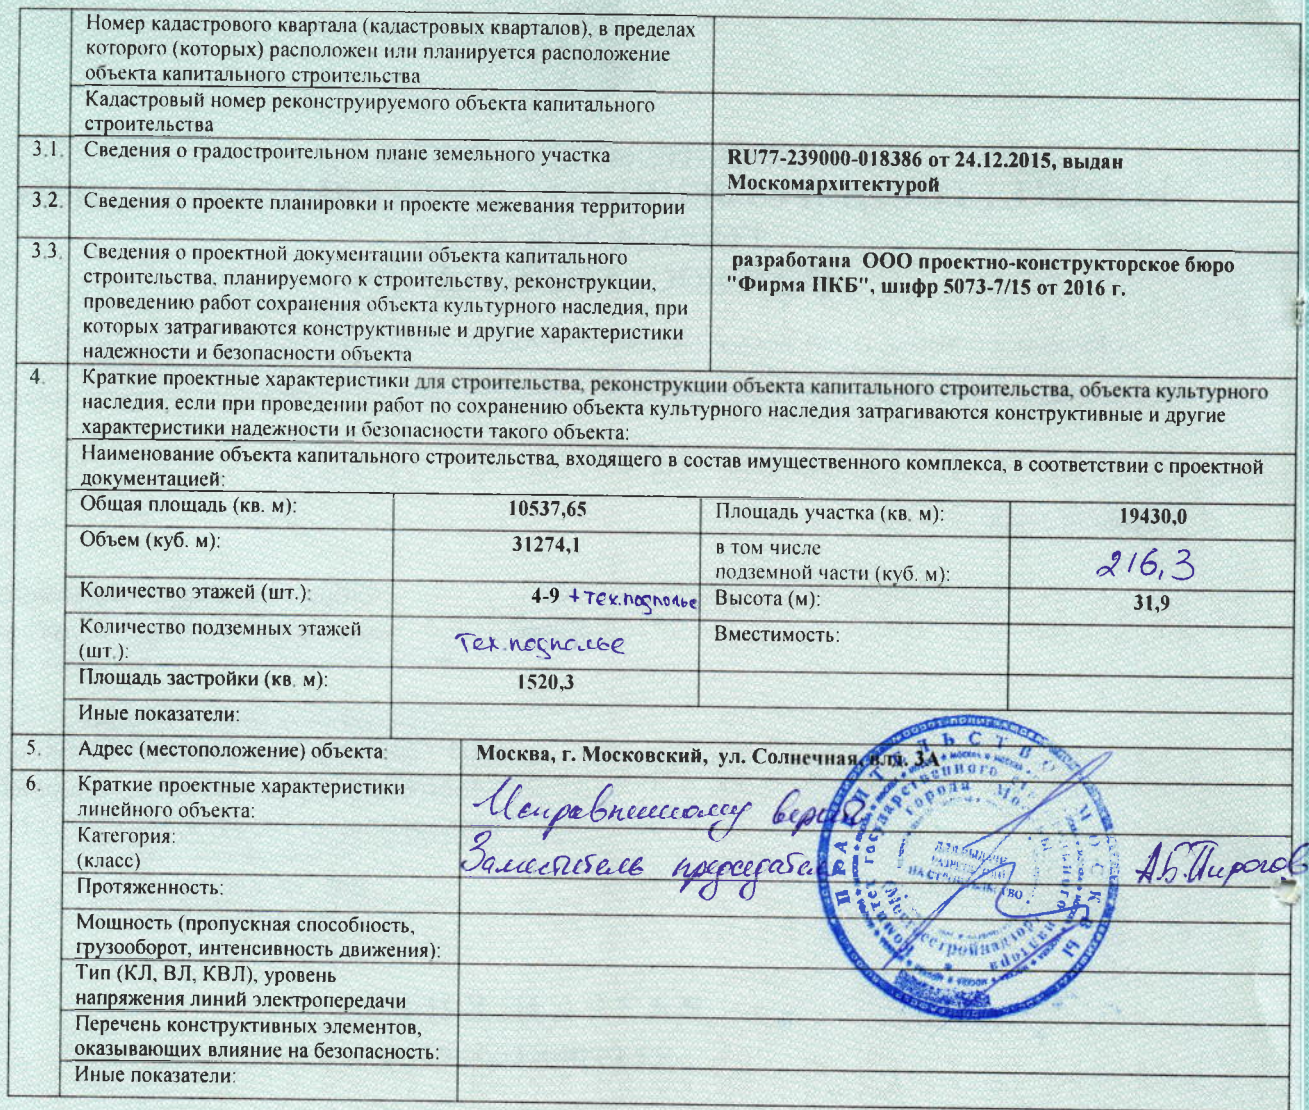 Номер кадастрового квартала (кадастровых кварталов), в пределах
которого (которых) расположен или планируется расположение
объекта капитального строительства
Кадастровый номер реконструируемого объекта капитального
строительства
3.1. Сведения о градостроительном плане земельного участка
RU77-239000-018386 от 24.12.2015, выдан
Москомархитектурой
3.2. Сведения о проекте планировки и проекте межевания территории
3.3. Сведения о проектной документации объекта капитального
строительства, планируемого к строительству, реконструкции,
проведению работ сохранения объекта культурного наследия, при
которых затрагиваются конструктивные и другие характеристики
надежности и безопасности объекта
разработана ООО проектно-конструкторское бюро
"Фирма ПКБ", шифр 5073-7/15 от 2016 г.
4. Краткие проектные характеристики для строительства, реконструкции объекта капитального строительства, объекта культурного
наследия, если при проведении работ по сохранению объекта культурного наследия затрагиваются конструктивные и другие
характеристики надежности и безопасности такого объекта:
Наименование объекта капитального строительства, входящего в состав имущественного комплекса, в соответствии с проектной
документацией:
Общая площадь (кв. м): 10537,65 Площадь участка (кв. м): 19430,0
Объем (куб. м): 31274,1 в том числе
подземной части (куб. м): 216,3
Количество этажей (шт.): 4-9 + тех.подполье Высота (м): 31,9
Количество подземных этажей
(шт.): Тех.подполье Вместимость:
Площадь застройки (кв. м): 1520,3
Иные показатели:
5. Адрес (местоположение) объекта: Москва, г. Московский, ул. Солнечная, влд. 3А
6. Краткие проектные характеристики
линейного объекта:
Исправленному верить
Категория:
(класс)
Заместитель председателя А.Б.Пирогов
Протяженность:
Мощность (пропускная способность,
грузооборот, интенсивность движения):
Тип (КЛ, ВЛ, КВЛ), уровень
напряжения линий электропередачи
Перечень конструктивных элементов,
оказывающих влияние на безопасность:
Иные показатели:
ПРАВИТЕЛЬСТВО МОСКВЫ
Комитет государственного строительного надзора
города Москвы
(Мосгосстройнадзор)
ДЛЯ ВЫДАЧИ
РАЗРЕШЕНИЙ
НА СТРОИТЕЛЬСТВО